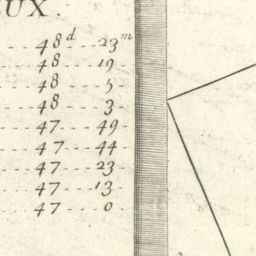 UX.
48d 23m
48 19
48 5
48 3
47 49
47 44
47 23
47 13
47 0